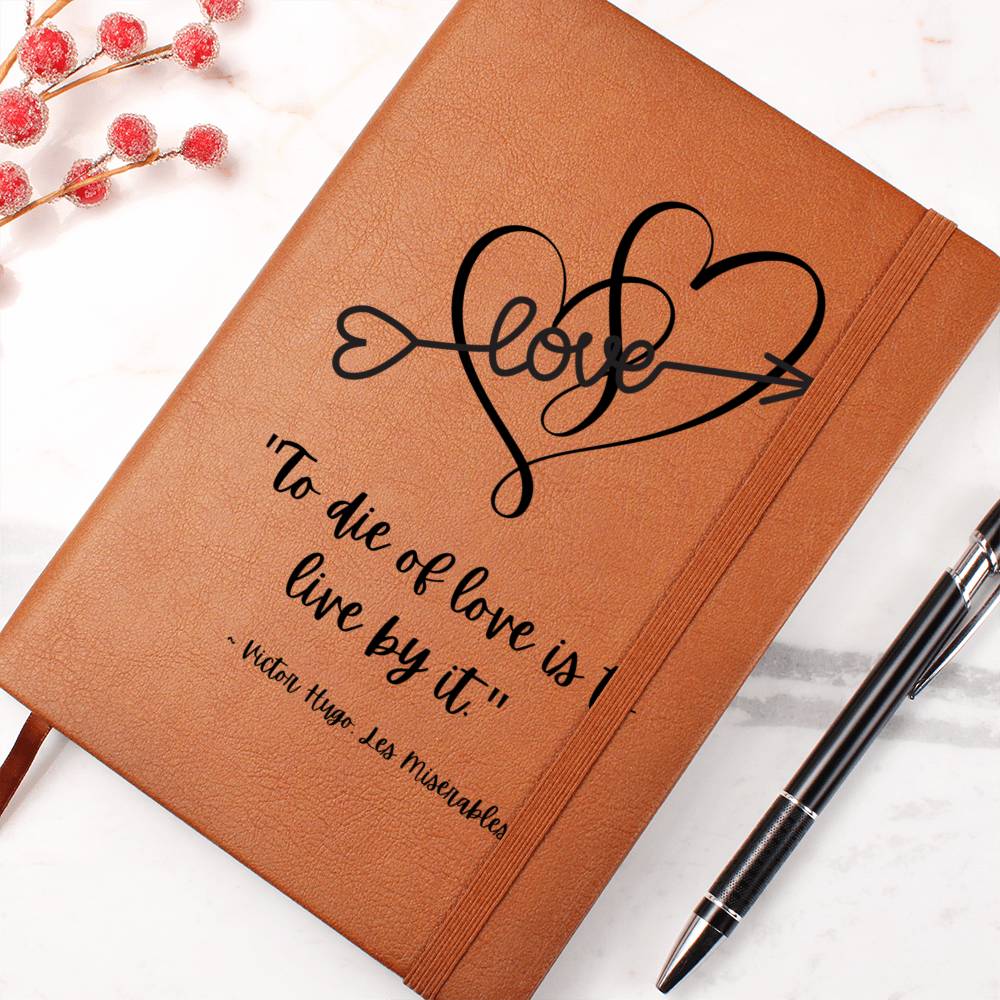 love
"To die of love is
live by it."
~ Victor Hugo. Les Miserables